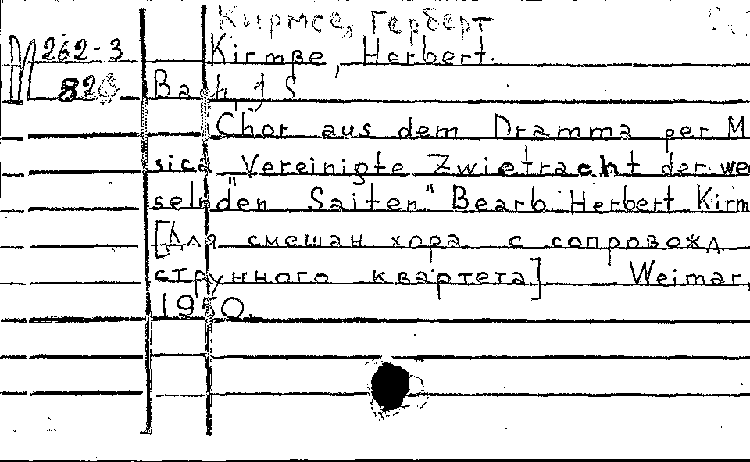 Кирмсе, Герберт
М 262-3 Kirmße, Herbert.
826 Bach, J S
Chor aus dem Dramma per M
sica Vereinigte Zwietracht der we
selnden Saiten" Bearb Herbert Kirm
[Для смешан хора с сопровожд
струнного квартета] Weimar,
1950.